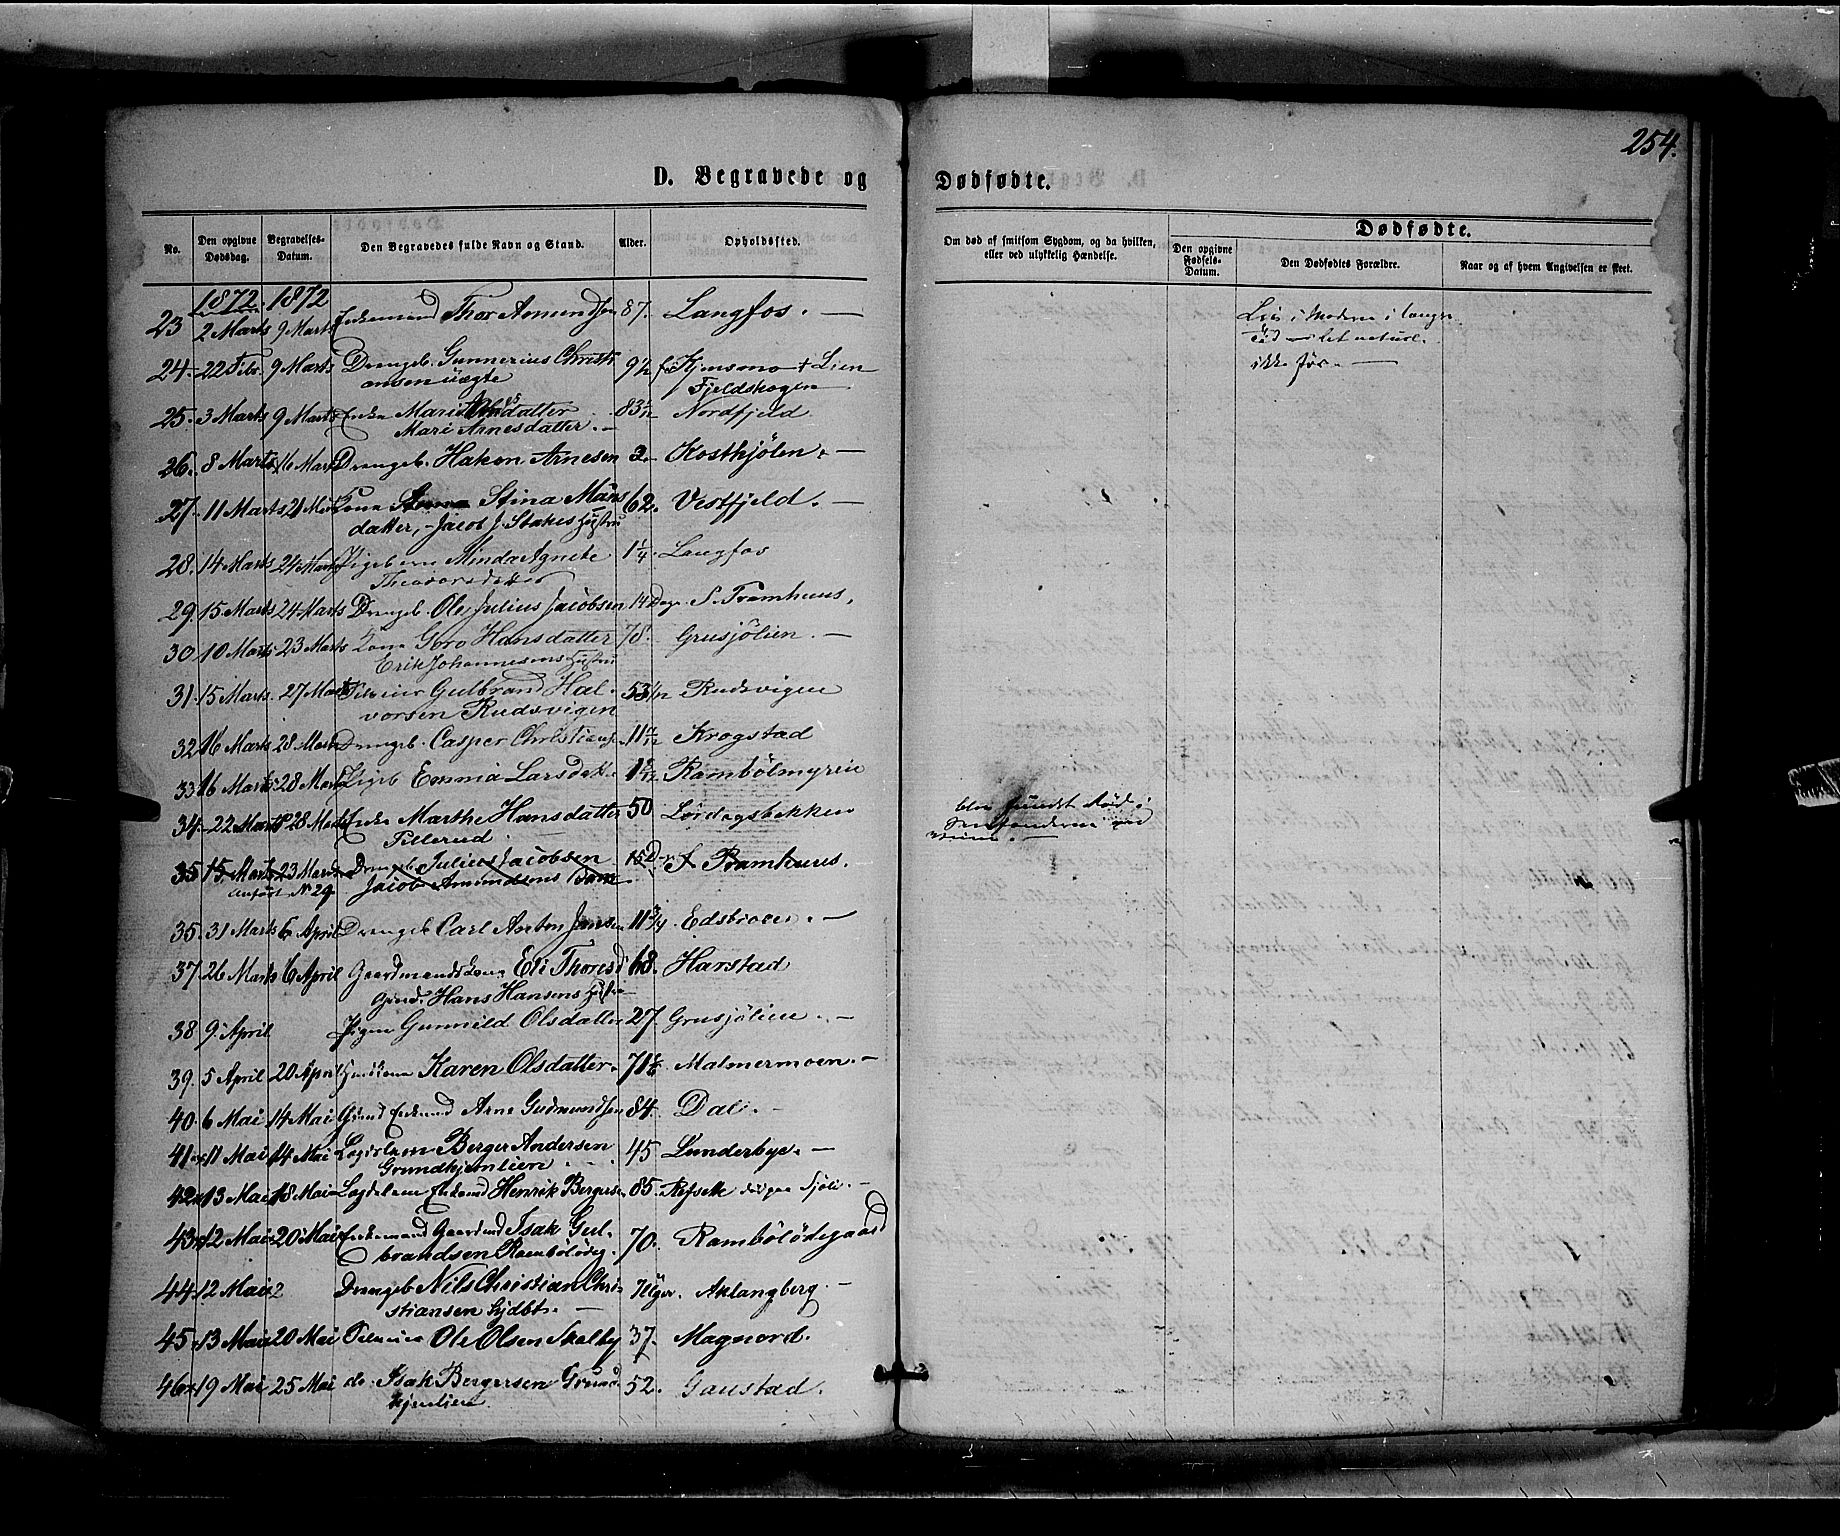 254.
D. Begravede og Dødfødte.
No. Den opgivne Dødsdag. Begravelses-Datum. Den Begravedes fulde Navn og Stand. Alder. Opholdssted.
Om død af smitsom Sygdom, og da hvilken, eller ved ulykkelig Hændelse.
Dødfødte.
Den opgivne Fødsels-Datum. Den Dødfødtes Forældre. Naar og af hvem Angivelsen er skeet.
1872. 1872
23 2 Marts 9 Marts Enkemand Thor Amundsen 87. Langfos. —
24. 22 Febr. 9 Marts Drengeb. Gunnerius Christi
ansen uægte 9½ Kjensmo + Lien
Fjeldskogen
25. 3 Marts 9 Marts Enke
Mari Arnesdatter. — 83 Nordfjeld
26. 8 Marts 16 Marts Drengeb. Hakon Arnesen 3. Kostkjølen. —
27. 11 Marts 21 Marts Kona Stina Måns
datter, - Jacob J. Stakes Hustru 62. Vestfjeld. —
28. 14 Marts 24 Marts Pigebarn Minda Agnete
Theodorsdatter 1¼ Langfos
29. 15 Marts 24 Marts Drengeb. Ole Julius Jacobsen 14 Dage S. Tramhuus.
30 10 Marts 23 Marts Kona Goro Hansdatter 78. Grusjølien. —
Erik Johannesens Hustru
31. 15 Marts. 27 Marts Gulbrand Hal-
vorsen Rudsvigen 53 Rudsvigen
32. 16 Marts 28 Marts Drengeb. Casper Christians. 11 Krogstad
33. 16 Marts 28 Marts Pigeb Emma Larsdatt. 1 Rambölmyren
34. 22 Marts 28 Marts Enke Marthe Hansdatter 50 Lördagsbekken
Tillerud
blev fundet död i
35 15 Marts 23 Marts Drengeb. Julius Jacobsen 15 D. S Tramhuus.
anført No 29 Jacob Amundsens
35. 31 Marts 6 April Drengeb Carl Anton Jensen 11¾ Edsbroen. —
37. 26 Marts 6 April Gaardmandskone Eli Thoresd 68. Harstad
Gmd. Hans Hansens Hustru
38 9 April Pigen Gunnild Olsdatter 27. Grusjölien. —
39. 5 April 20 April Karen Olsdatter. 71 Malmermoen. —
40. 6 Mai 14 Mai Enkemd Arne Gudmundsen 84. Dal. —
41. 11 Mai 14 Mai Lægdslem Berger Andersen
Grundkjenlien 45 Lunderbye. —
42. 13 Mai 18 Mai Lægdslem Enkemd Henrik Bergersen 85. Refsette Sjöli. —
43. 12 Mai 20 Mai Enkemand Gaardmd Isak Gul-
brandsen Rambölödeg. 70. Rambölödegaard
44. 12 Mai Drengeb Nils Christian Chri-
stiansen Gjdbt. — 7 Uger. Aklangberg. —
45. 13 Mai 20 Mai Ole Olsen Skalby 37. Magnord.
46. 19 Mai 25 Mai do. Isak Bergersen Grund-
kjenlien 52. Gaustad.
i
ikke før. —